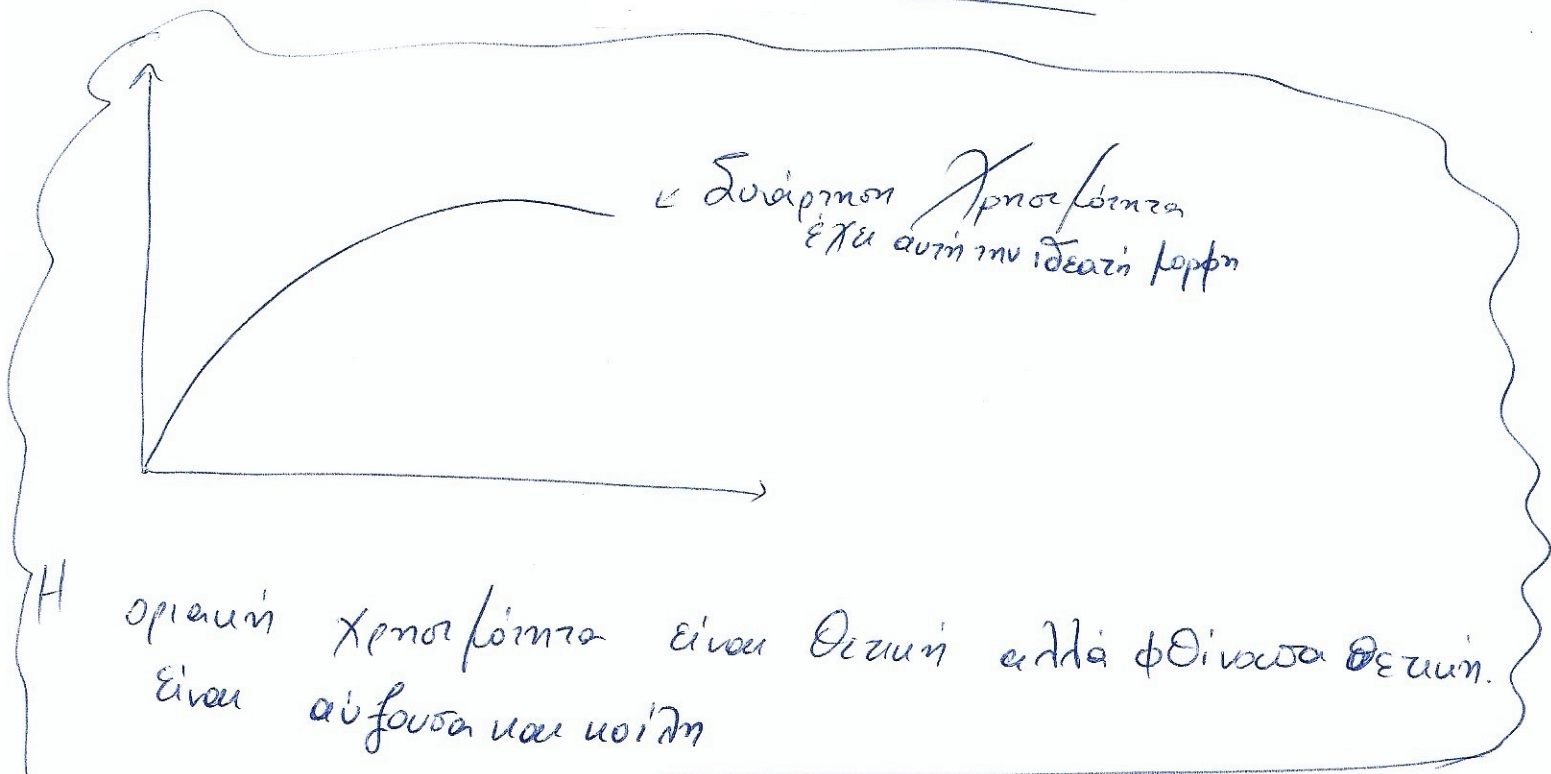 Συνάρτηση Χρησιμότητα
έχει αυτή την ιδεατή μορφη
Η οριακή χρησιμότητα είναι θετική αλλά φθίνουσα θετική.
είναι αύξουσα και κοίλη